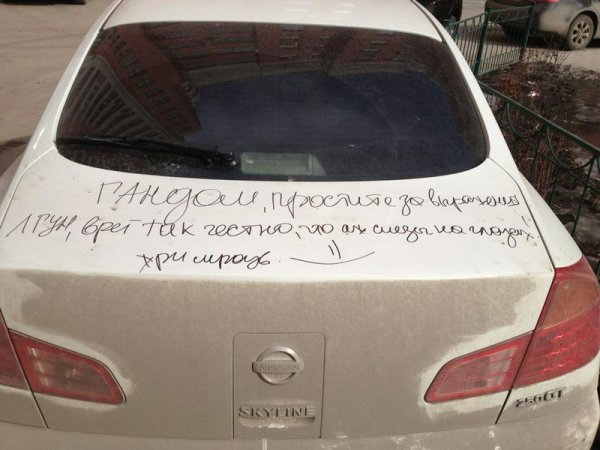 ГАНДОН, простите за выражение
ЛГУН, врет так честно, что аж слезы на глазах
мразь.
NISSAN
SKYLINE
250GT